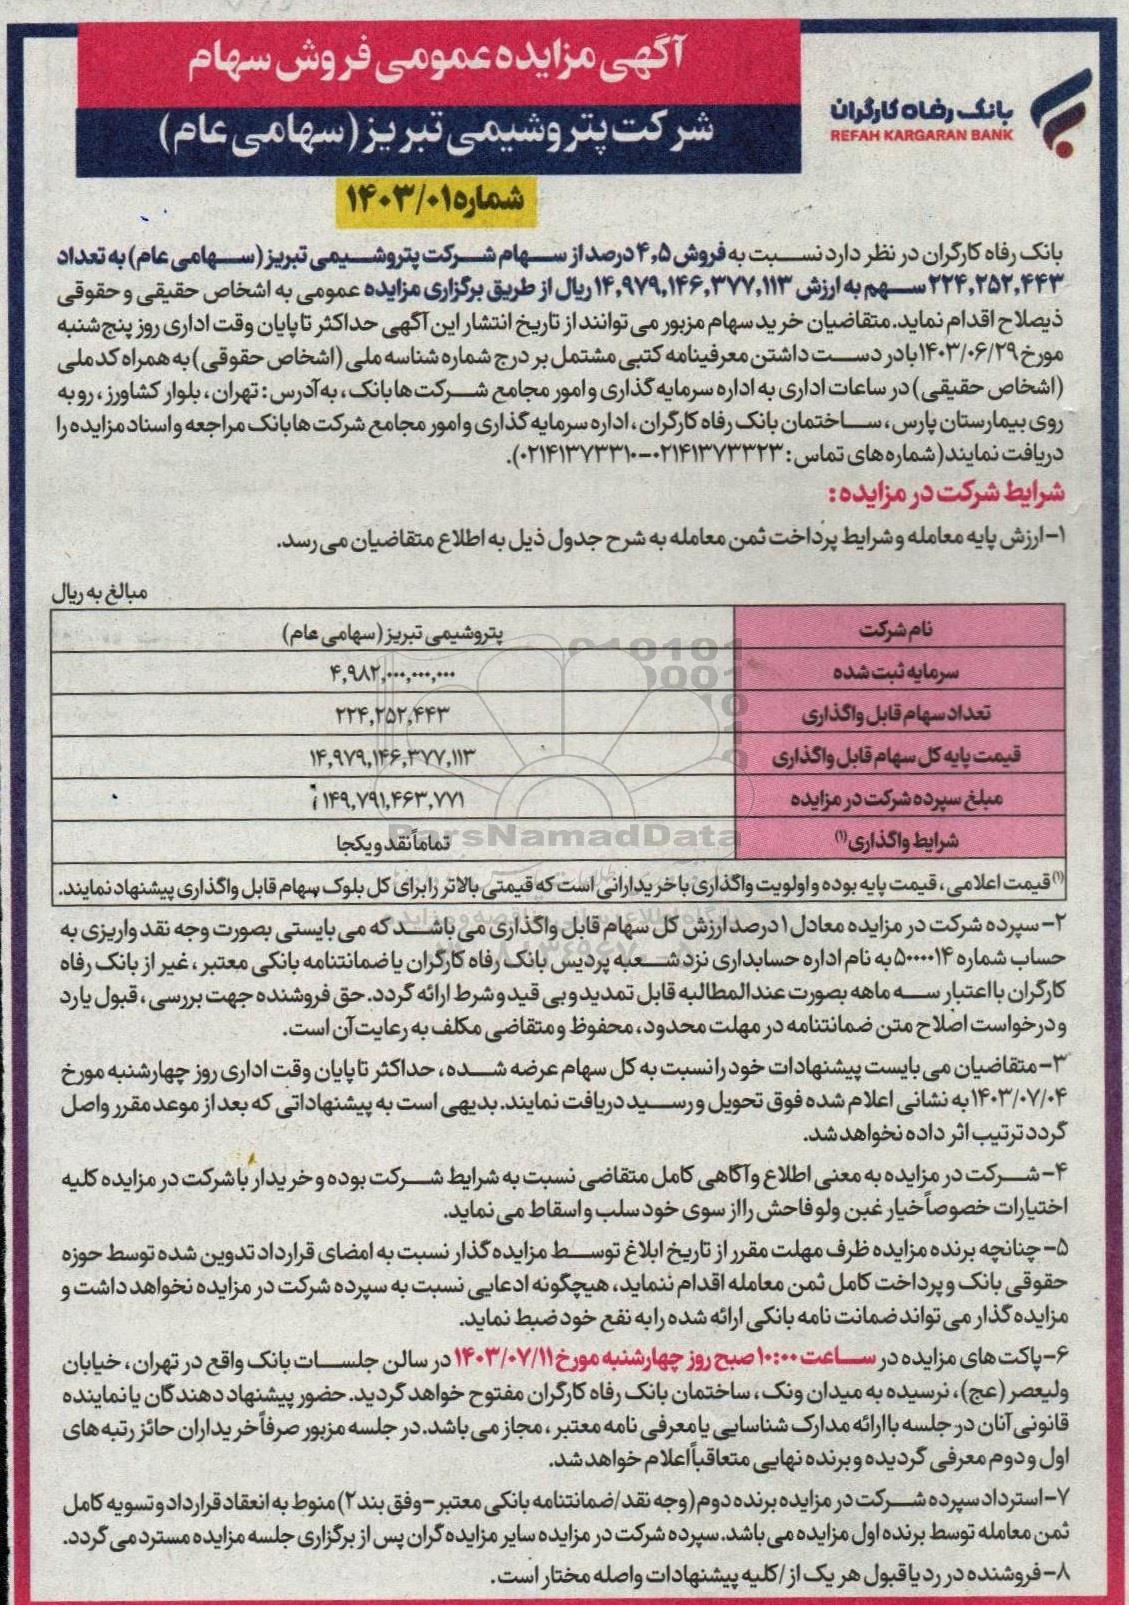 آگهی مزایده عمومی فروش سهام
شرکت پتروشیمی تبریز (سهامی عام)
بانک رفاه کارگران
REFAH KARGARAN BANK
شماره ۱۴۰۳/۰۱
بانک رفاه کارگران در نظر دارد نسبت به فروش ۴,۵ درصد از سهام شرکت پتروشیمی تبریز (سهامی عام) به تعداد
۲۲۴,۲۵۲,۴۴۳ سهم به ارزش ۱۴,۹۷۹,۱۴۶,۳۷۷,۱۱۳ ریال از طریق برگزاری مزایده عمومی به اشخاص حقیقی و حقوقی
ذیصلاح اقدام نماید. متقاضیان خرید سهام مزبور می توانند از تاریخ انتشار این آگهی حداکثر تا پایان وقت اداری روز پنج شنبه
مورخ ۱۴۰۳/۰۶/۲۹ با در دست داشتن معرفینامه کتبی مشتمل بر درج شماره شناسه ملی (اشخاص حقوقی) به همراه کد ملی
(اشخاص حقیقی) در ساعات اداری به اداره سرمایه گذاری و امور مجامع شرکت ها بانک، به آدرس: تهران، بلوار کشاورز، رو به
روی بیمارستان پارس، ساختمان بانک رفاه کارگران، اداره سرمایه گذاری و امور مجامع شرکت ها بانک مراجعه و اسناد مزایده را
دریافت نمایند (شماره های تماس: ۰۲۱۴۱۳۷۳۳۲۳-۰۲۱۴۱۳۷۳۳۱۰).
شرایط شرکت در مزایده:
۱- ارزش پایه معامله و شرایط پرداخت ثمن معامله به شرح جدول ذیل به اطلاع متقاضیان می رسد.
مبالغ به ریال
نام شرکت پتروشیمی تبریز (سهامی عام)
سرمایه ثبت شده ۴,۹۸۲,۰۰۰,۰۰۰,۰۰۰
تعداد سهام قابل واگذاری ۲۲۴,۲۵۲,۴۴۳
قیمت پایه کل سهام قابل واگذاری ۱۴,۹۷۹,۱۴۶,۳۷۷,۱۱۳
مبلغ سپرده شرکت در مزایده ۱۴۹,۷۹۱,۴۶۳,۷۷۱
شرایط واگذاری (۱) تماماً نقد و یکجا
ParsNamadData
(۱) قیمت اعلامی، قیمت پایه بوده و اولویت واگذاری با خریدارانی است که قیمتی بالاتر را برای کل بلوک سهام قابل واگذاری پیشنهاد نمایند.
۲- سپرده شرکت در مزایده معادل ۱ درصد ارزش کل سهام قابل واگذاری می باشد که می بایستی بصورت وجه نقد واریزی به
حساب شماره ۵۰۰۰۰۱۴ به نام اداره حسابداری نزد شعبه پردیس بانک رفاه کارگران یا ضمانتنامه بانکی معتبر، غیر از بانک رفاه
کارگران با اعتبار سه ماهه بصورت عندالمطالبه قابل تمدید و بی قید و شرط ارائه گردد. حق فروشنده جهت بررسی، قبول یا رد
و درخواست اصلاح متن ضمانتنامه در مهلت محدود، محفوظ و متقاضی مکلف به رعایت آن است.
۳- متقاضیان می بایست پیشنهادات خود را نسبت به کل سهام عرضه شده، حداکثر تا پایان وقت اداری روز چهارشنبه مورخ
۱۴۰۳/۰۷/۰۴ به نشانی اعلام شده فوق تحویل و رسید دریافت نمایند. بدیهی است به پیشنهاداتی که بعد از موعد مقرر واصل
گردد ترتیب اثر داده نخواهد شد.
۴- شرکت در مزایده به معنی اطلاع و آگاهی کامل متقاضی نسبت به شرایط شرکت بوده و خریدار با شرکت در مزایده کلیه
اختیارات خصوصاً خیار غبن ولو فاحش را از سوی خود سلب و اسقاط می نماید.
۵- چنانچه برنده مزایده ظرف مهلت مقرر از تاریخ ابلاغ توسط مزایده گذار نسبت به امضای قرارداد تدوین شده توسط حوزه
حقوقی بانک و پرداخت کامل ثمن معامله اقدام ننماید، هیچگونه ادعایی نسبت به سپرده شرکت در مزایده نخواهد داشت و
مزایده گذار می تواند ضمانت نامه بانکی ارائه شده را به نفع خود ضبط نماید.
۶- پاکت های مزایده در ساعت ۱۰:۰۰ صبح روز چهارشنبه مورخ ۱۴۰۳/۰۷/۱۱ در سالن جلسات بانک واقع در تهران، خیابان
ولیعصر (عج)، نرسیده به میدان ونک، ساختمان بانک رفاه کارگران مفتوح خواهد گردید. حضور پیشنهاد دهندگان یا نماینده
قانونی آنان در جلسه با ارائه مدارک شناسایی یا معرفی نامه معتبر، مجاز می باشد. در جلسه مزبور صرفاً خریداران حائز رتبه های
اول و دوم معرفی گردیده و برنده نهایی متعاقباً اعلام خواهد شد.
۷- استرداد سپرده شرکت در مزایده برنده دوم (وجه نقد/ضمانتنامه بانکی معتبر - وفق بند ۲) منوط به انعقاد قرارداد و تسویه کامل
ثمن معامله توسط برنده اول مزایده می باشد. سپرده شرکت در مزایده سایر مزایده گران پس از برگزاری جلسه مزایده مسترد می گردد.
۸- فروشنده در رد یا قبول هر یک از/کلیه پیشنهادات واصله مختار است.